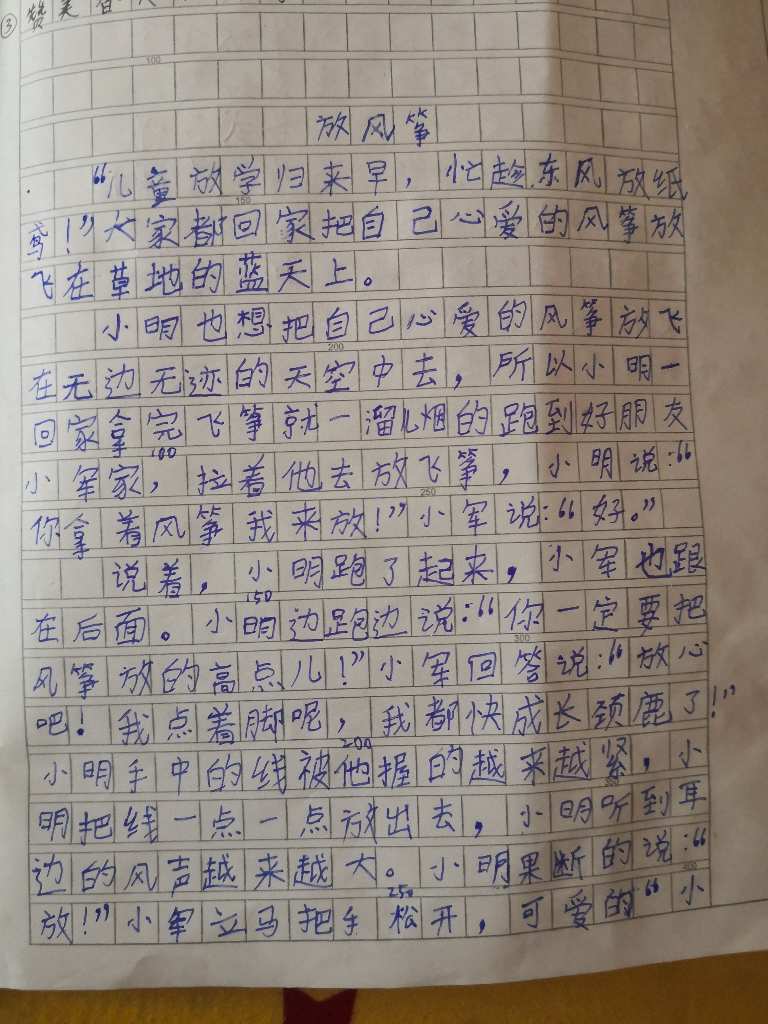 ③赞美
100
放风筝
“儿童放学归来早，忙趁东风放纸
150
鸢！”大家都回家把自己心爱的风筝放
飞在草地的蓝天上。
小明也想把自己心爱的风筝放飞
200
在无边无迹的天空中去，所以小明一
回家拿完飞筝就一溜儿烟的跑到好朋友
100
小军家，拉着他去放飞筝，小明说：“
250
你拿着风筝我来放！”小军说：“好。”
说着，小明跑了起来，小军也跟
150
在后面。小明边跑边说：“你一定要把
300
风筝放的高点儿！”小军回答说：“放心
吧！我点着脚呢，我都快成长颈鹿了！”
200
小明手中的线被他握的越来越紧，小
明把线一点一点放出去，小明听到耳
边的风声越来越大。小明果断的说：“
250
放！”小军立马把手松开，可爱的“小